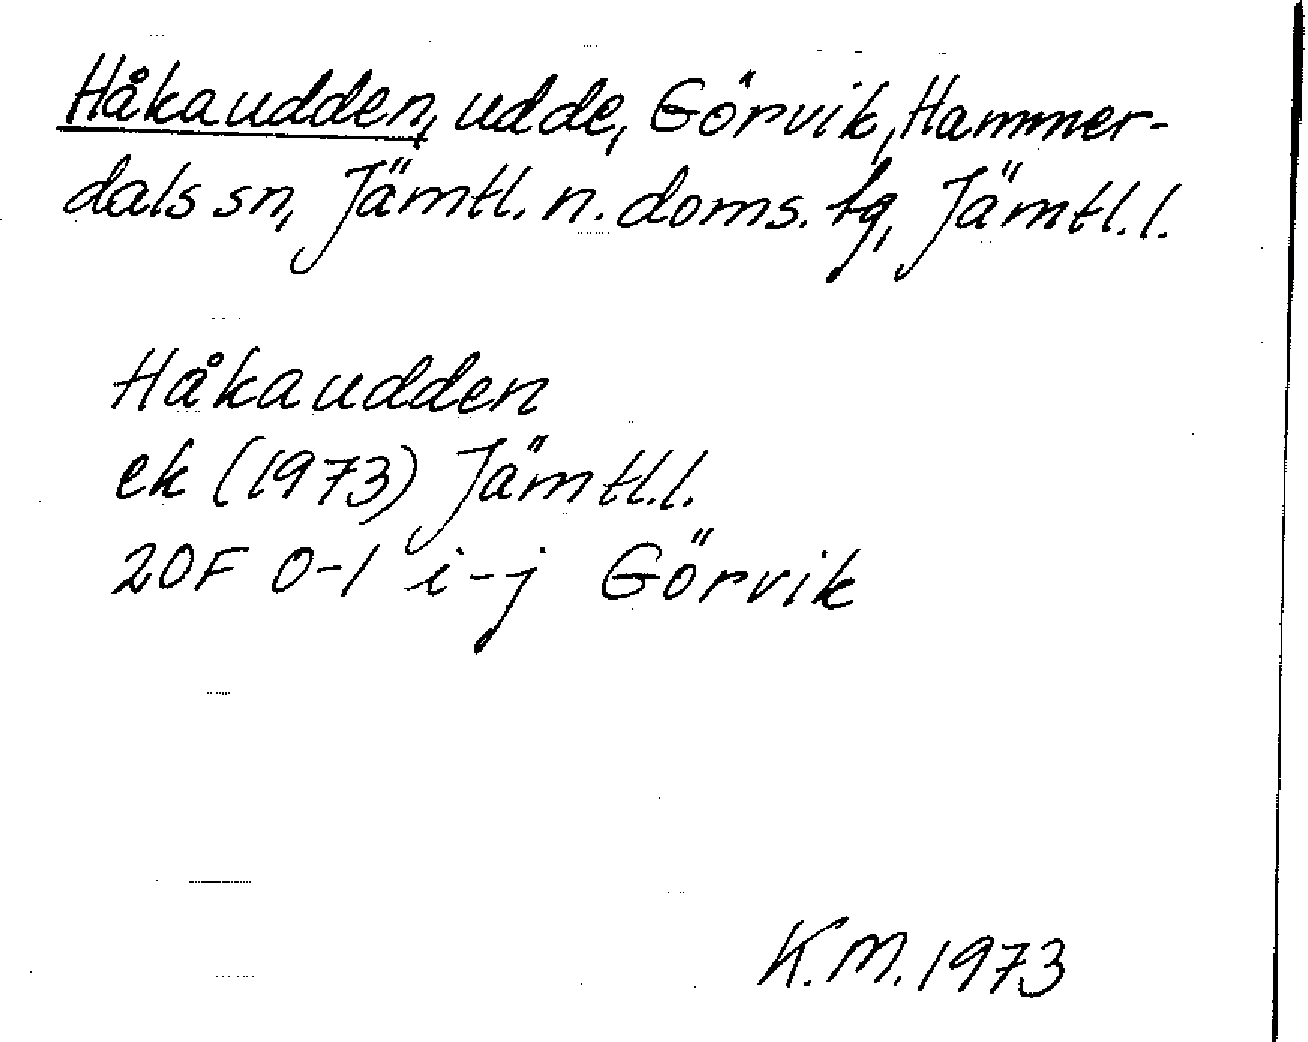 Håkaudden, udde, Görvik, Hammer-
dals sn, Jämtl. n. doms. fg, Jämtl. l.
Håkaudden
ek (1973) Jämtl. l.
20F 0-1 i-j Görvik
K. M. 1973